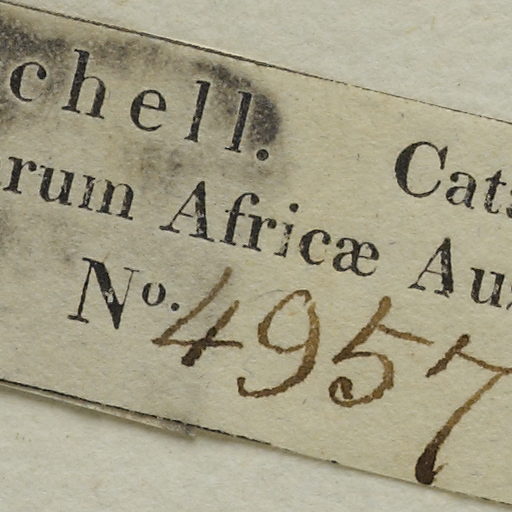 chell. Cat
rum Africæ Au
No. 4957